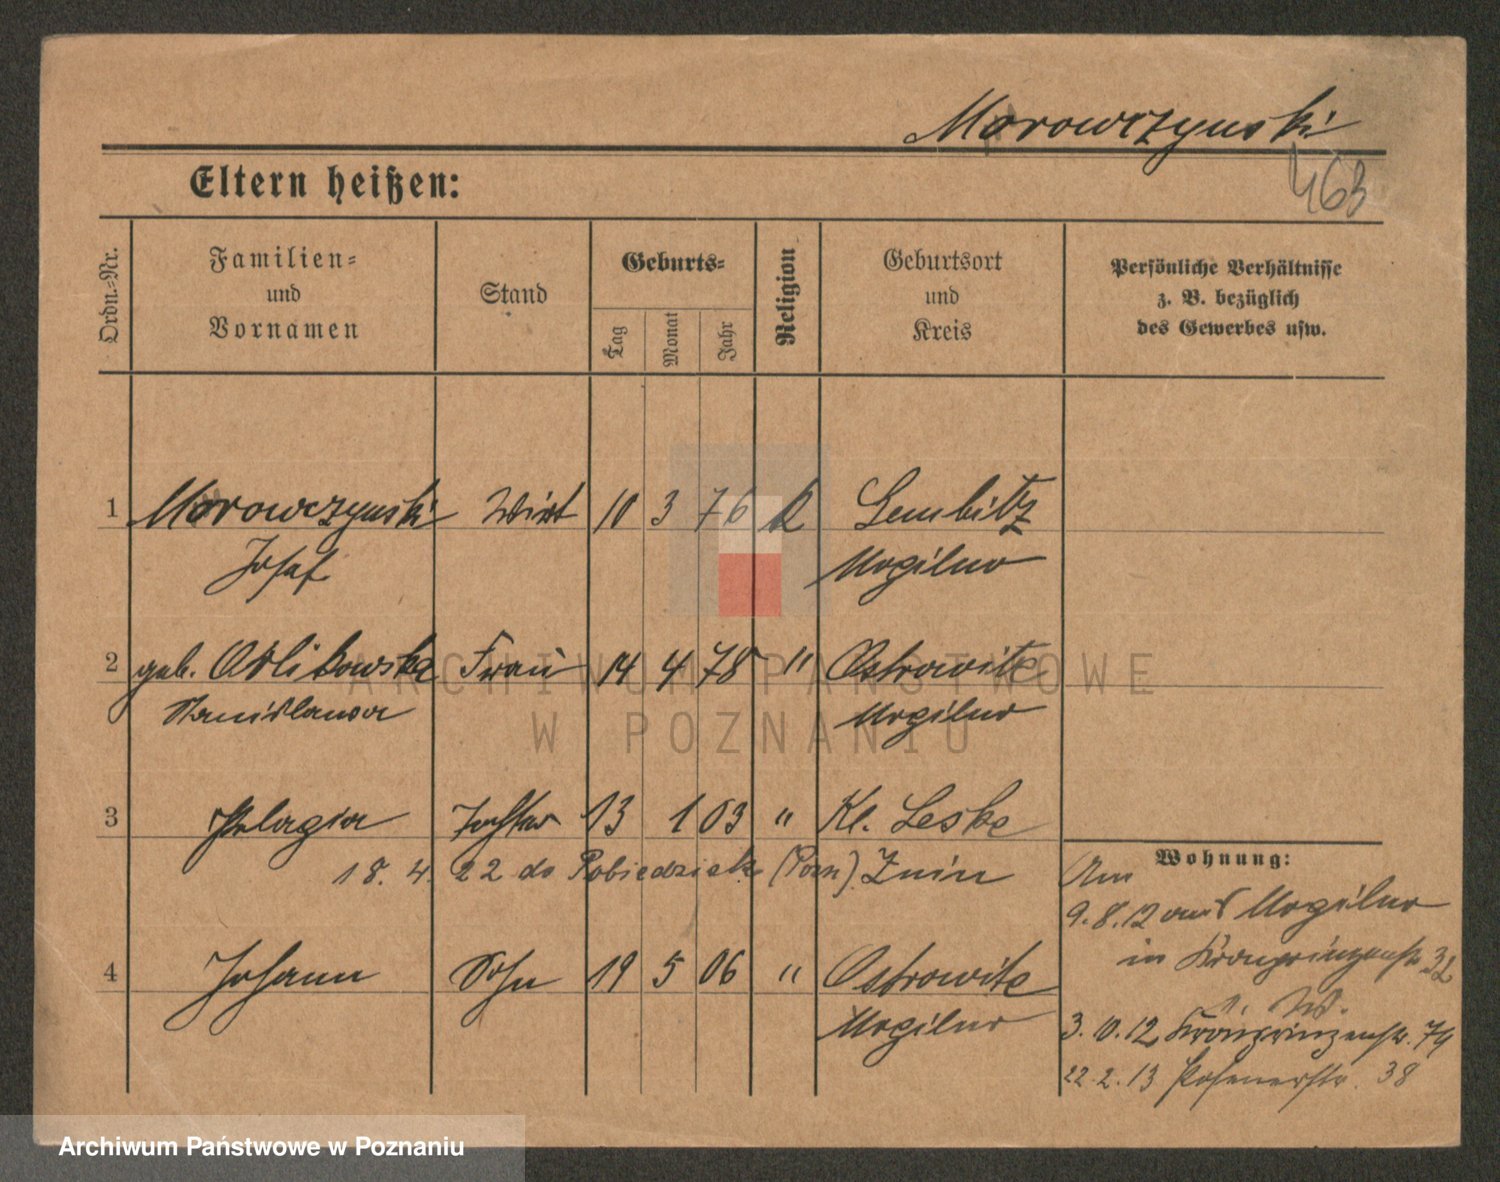 Morowczynski
463
Eltern heißen:
Ordn.=Nr.
Familien=
und
Vornamen
Stand
Geburts=
Tag
Monat
Jahr
Religion
Geburtsort
und
Kreis
Persönliche Verhältnisse
z. B. bezüglich
des Gewerbes usw.
1 Morowczynski Wirt 10 3 76 k Lembitz
Josef Mogilno
2 geb. Orlikowska Frau 14 4 78 " Ostrowite
Stanislawa Mogilno
3 Pelagia Tochter 13 1 03 " Kl. Leske
18. 4. 22 do Pobiedzisk (Pozn). Znin
4 Johann Sohn 19 5 06 " Ostrowite
Mogilno
Wohnung:
Am
9. 8. 12 aus Mogilno
in Kronprinzenstr. 32
3. 10. 12 Kronprinzenstr. 79
22. 2. 13 Posenerstr. 38
ARCHIWUM PAŃSTWOWE
W POZNANIU
Archiwum Państwowe w Poznaniu